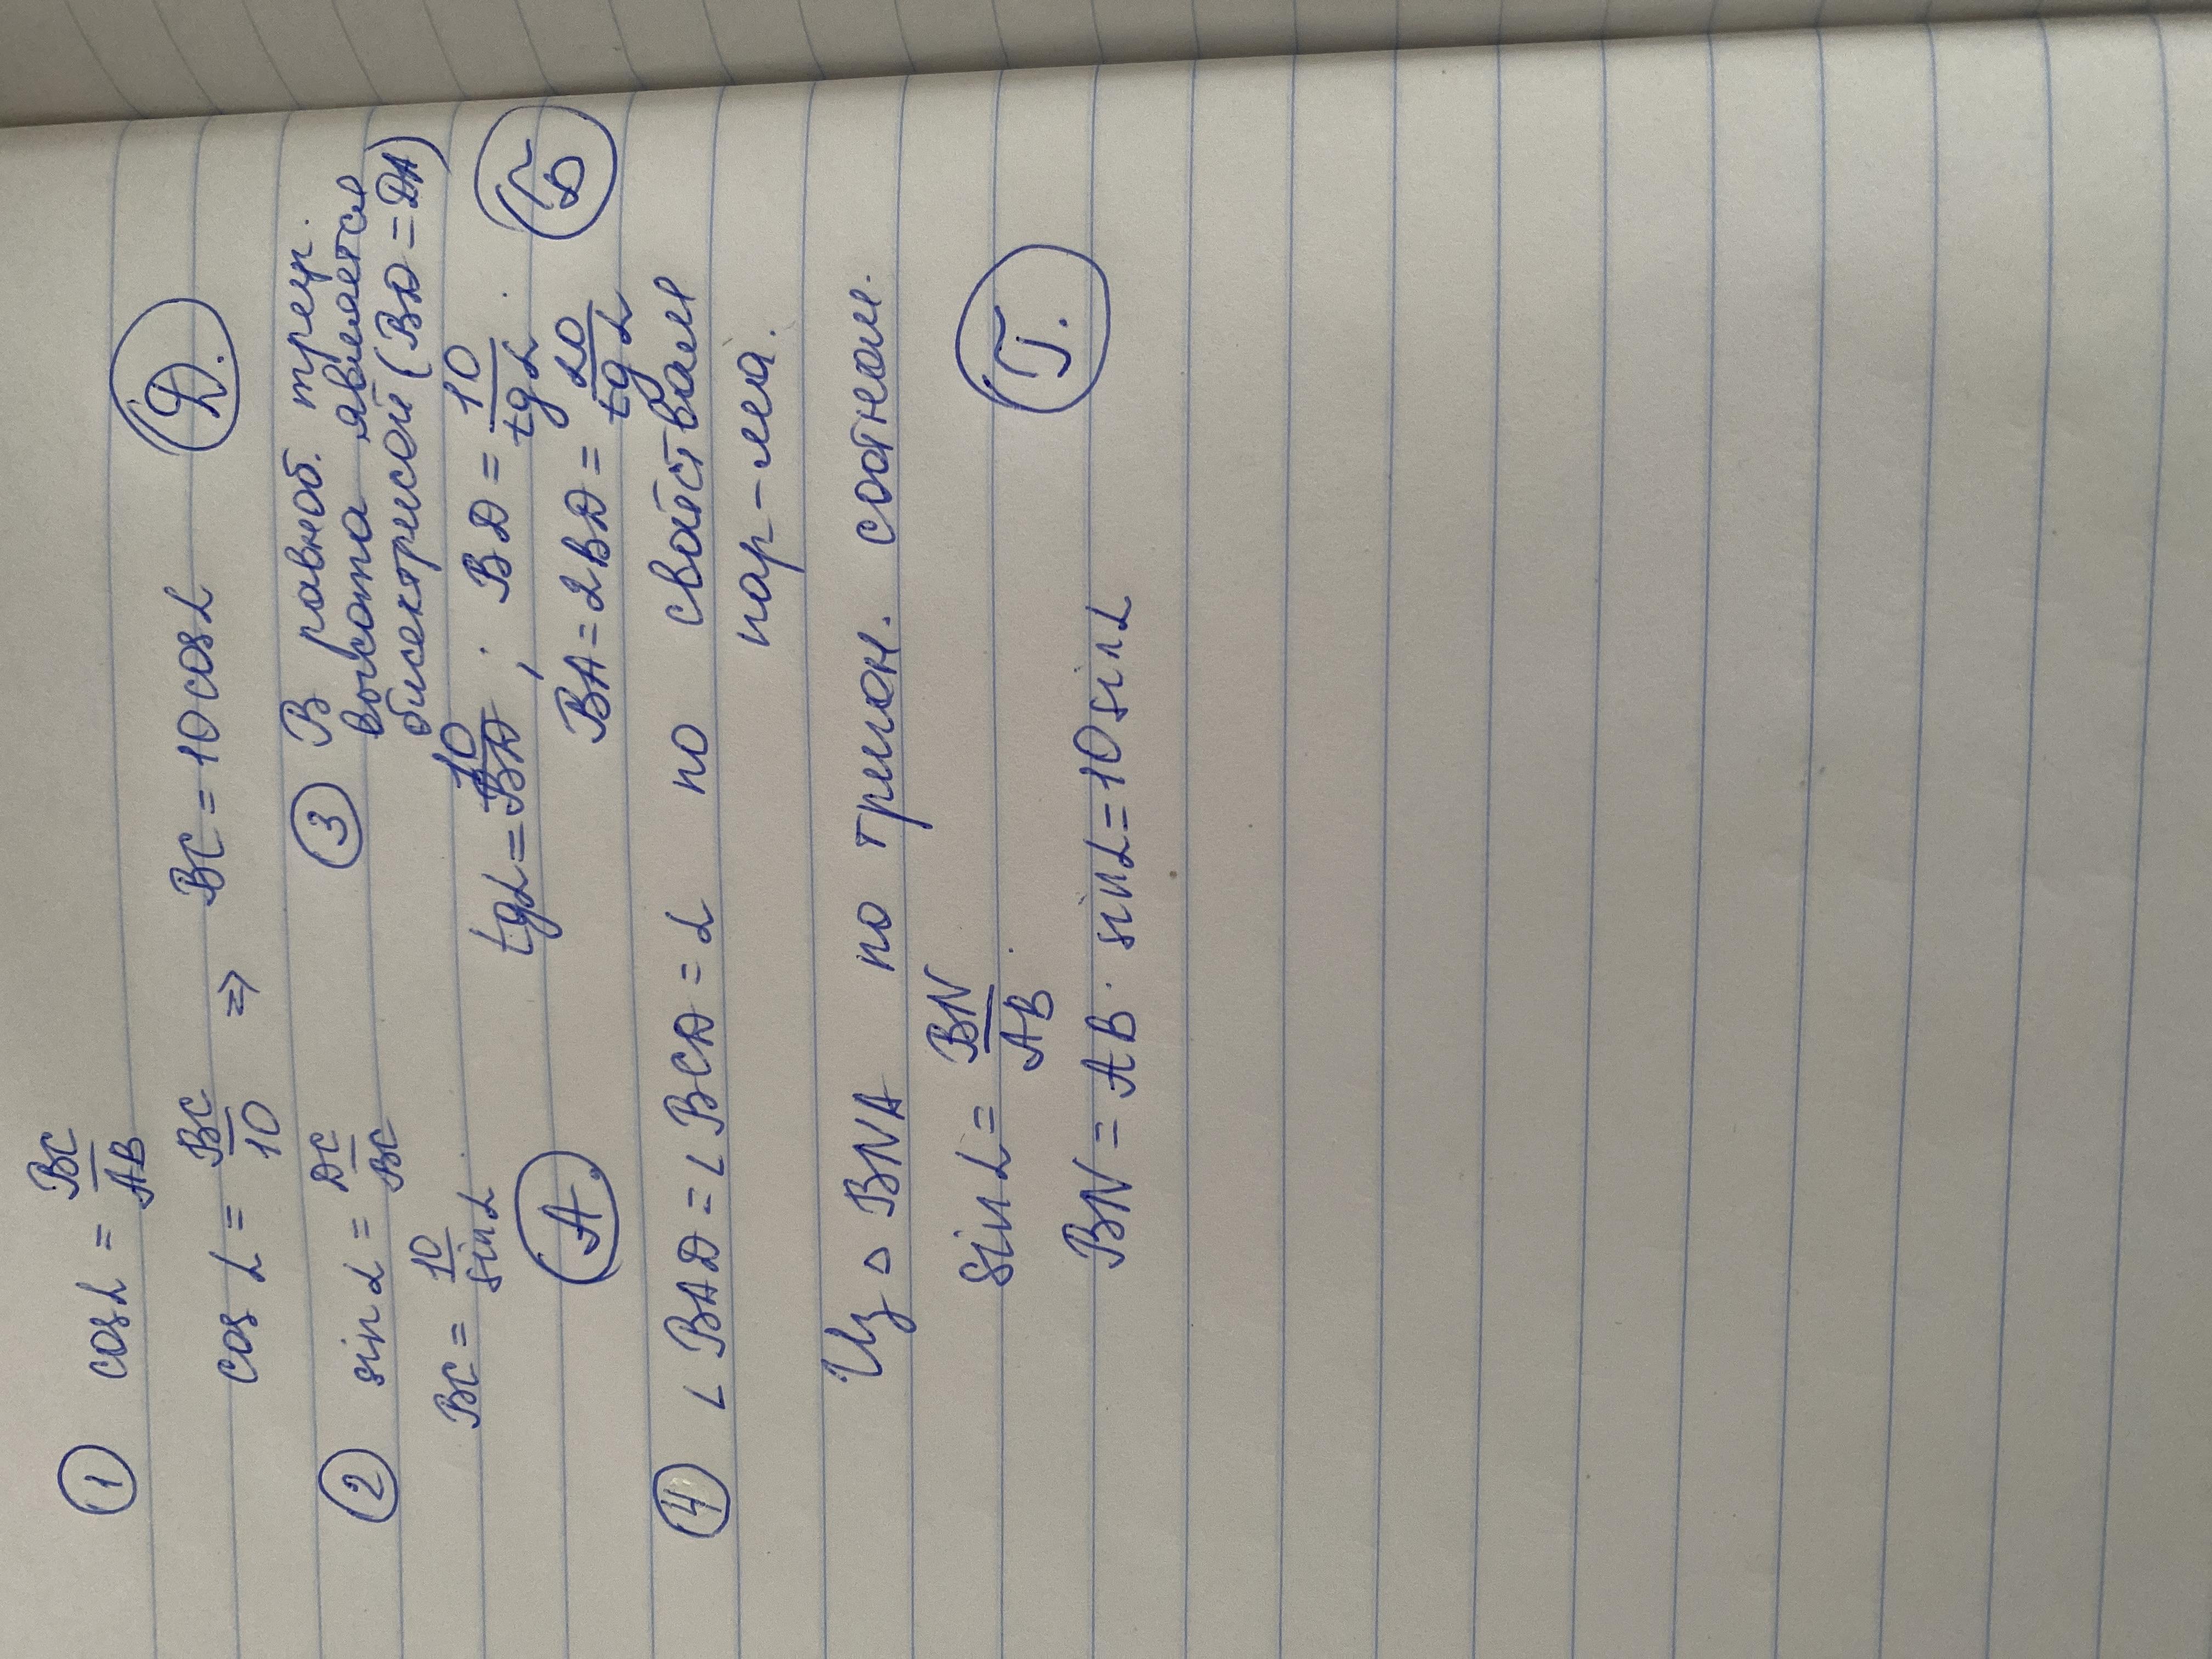 ① cos α = BC/AB
cos α = BC/10 ⇒ BC = 10 cos α
Д.
② sin α = DC/BC
BC = 10/sin α
А.
③ В равноб. треу.
высота является
бисектрисой (BD = DA)
tg α = 10/BD ; BD = 10/tg α .
BA = 2BD = 20/tg α
Б
④ ∠ BAD = ∠ BCD = α по свойствам
пар-ма.
Из △ BNA по тригон. соотнош.
sin α = BN/AB .
BN = AB · sin α = 10 sin α
Г.